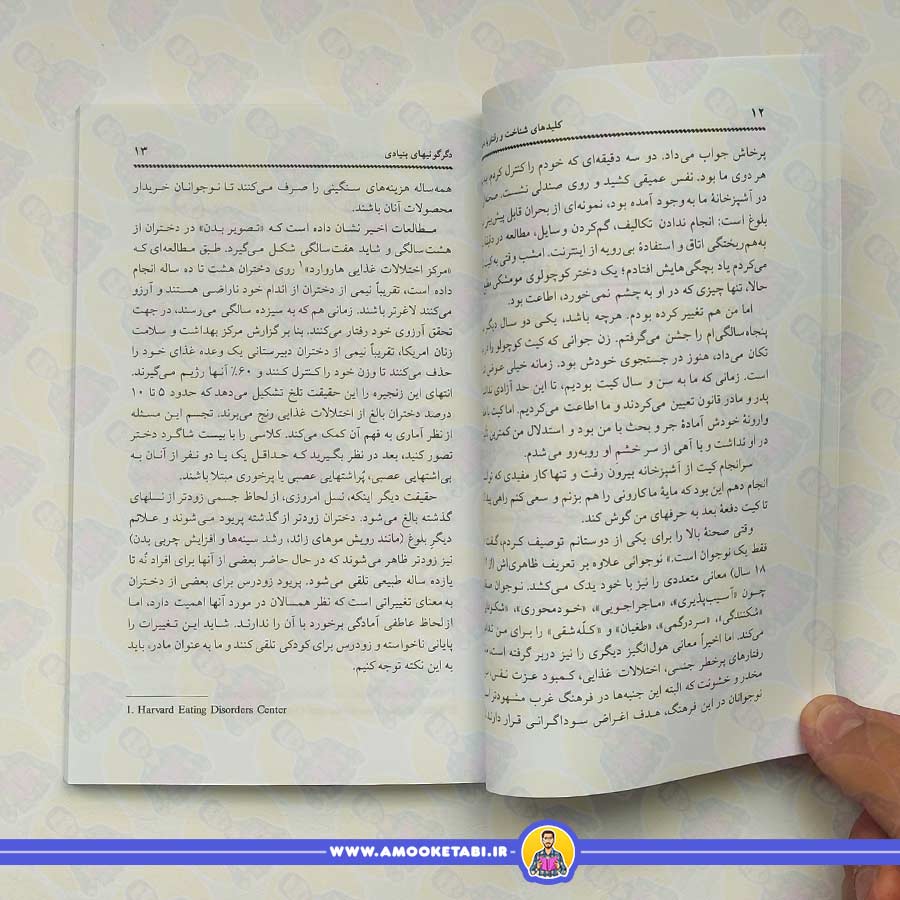 ۱۲
کلیدهای شناخت و رفتار با
پرخاش جواب می‌داد. دو سه دقیقه‌ای که خودم را کنترل کردم،
هر دوی ما بود. نفس عمیقی کشید و روی صندلی نشست.
در آشپزخانهٔ ما به‌وجود آمده بود، نمونه‌ای از بحران قابل
بلوغ است: انجام ندادن تکالیف، گم‌کردن وسایل، مطالعه در
به‌هم‌ریختگی اتاق و استفادهٔ بی‌رویه از اینترنت. امشب وقتی به
می‌کردم یاد بچگی‌هایش افتادم؛ یک دختر کوچولوی مومشکی
حالا، تنها چیزی که در او به چشم نمی‌خورد، اطاعت بود.
اما من هم تغییر کرده بودم. هرچه باشد، یکی دو سال دیگر
پنجاه‌سالگی‌ام را جشن می‌گرفتم. زن جوانی که کیت کوچولو را
تکان می‌داد، هنوز در جستجوی خودش بود. زمانه خیلی عوض
است. زمانی که ما به سن و سال کیت بودیم، تا این حد آزادی
پدر و مادر قانون تعیین می‌کردند و ما اطاعت می‌کردیم. اما کیت
وارونهٔ خودش آمادهٔ جر و بحث با من بود و استدلال من کمترین
در او نداشت و با آهی از سر خشم او روبه‌رو می‌شدم.
سرانجام کیت از آشپزخانه بیرون رفت و تنها کار مفیدی که
انجام دهم این بود که مایهٔ ماکارونی را هم بزنم و سعی کنم راهی
تا کیت دفعهٔ بعد به حرفهای من گوش کند.
وقتی صحنهٔ بالا را برای یکی از دوستانم توصیف کردم، گفت
فقط یک نوجوان است.» نوجوانی علاوه بر تعریف ظاهری‌اش
۱۸ سال) معانی متعددی را نیز با خود یدک می‌کشد. نوجوان
چون «آسیب‌پذیری»، «ماجراجویی»، «خودمحوری»،
«شکنندگی»، «سردرگمی»، «طغیان» و «کله‌شقی» را برای من
می‌کند. اما اخیراً معانی هول‌انگیز دیگری را نیز دربر گرفته است،
رفتارهای پرخطر جنسی، اختلالات غذایی، کمبود عزت نفس،
مخدر و خشونت که البته این جنبه‌ها در فرهنگ غرب مشهودتر
نوجوانان در این فرهنگ، هدف اغراض سوداگرانی قرار دارند
دگرگونیهای بنیادی
۱۳
همه‌ساله هزینه‌های سنگینی را صرف می‌کنند تا نوجوانان خریدار
محصولات آنان باشند.
مطالعات اخیر نشان داده است که «تصویر بدن» در دختران از
هشت‌سالگی و شاید هفت‌سالگی شکل می‌گیرد. طبق مطالعه‌ای که
«مرکز اختلالات غذایی هاروارد»۱ روی دختران هشت تا ده ساله انجام
داده است، تقریباً نیمی از دختران از اندام خود ناراضی هستند و آرزو
می‌کنند لاغرتر باشند. زمانی هم که به سیزده سالگی می‌رسند، در جهت
تحقق آرزوی خود رفتار می‌کنند. بنا بر گزارش مرکز بهداشت و سلامت
زنان امریکا، تقریباً نیمی از دختران دبیرستانی یک وعده غذای خود را
حذف می‌کنند تا وزن خود را کنترل کنند و ۶۰٪ آنها رژیم می‌گیرند.
انتهای این زنجیره را این حقیقت تلخ تشکیل می‌دهد که حدود ۵ تا ۱۰
درصد دختران بالغ از اختلالات غذایی رنج می‌برند. تجسم این مسئله
از نظر آماری به فهم آن کمک می‌کند. کلاسی را با بیست شاگرد دختر
تصور کنید، بعد در نظر بگیرید که حداقل یک یا دو نفر از آنان به
بی‌اشتهایی عصبی، پُراشتهایی عصبی یا پرخوری مبتلا باشند.
حقیقت دیگر اینکه، نسل امروزی، از لحاظ جسمی زودتر از نسلهای
گذشته بالغ می‌شود. دختران زودتر از گذشته پریود می‌شوند و علائم
دیگر بلوغ (مانند رویش موهای زائد، رشد سینه‌ها و افزایش چربی بدن)
نیز زودتر ظاهر می‌شوند که در حال حاضر بعضی از آنها برای افراد نُه تا
یازده ساله طبیعی تلقی می‌شود. پریود زودرس برای بعضی از دختران
به معنای تغییراتی است که نظر همسالان در مورد آنها اهمیت دارد، اما
از لحاظ عاطفی آمادگی برخورد با آن را ندارند. شاید این تغییرات را
پایانی ناخواسته و زودرس برای کودکی تلقی کنند و ما به‌عنوان مادر، باید
به این نکته توجه کنیم.
1. Harvard Eating Disorders Center
WWW.AMOOKETABI.IR